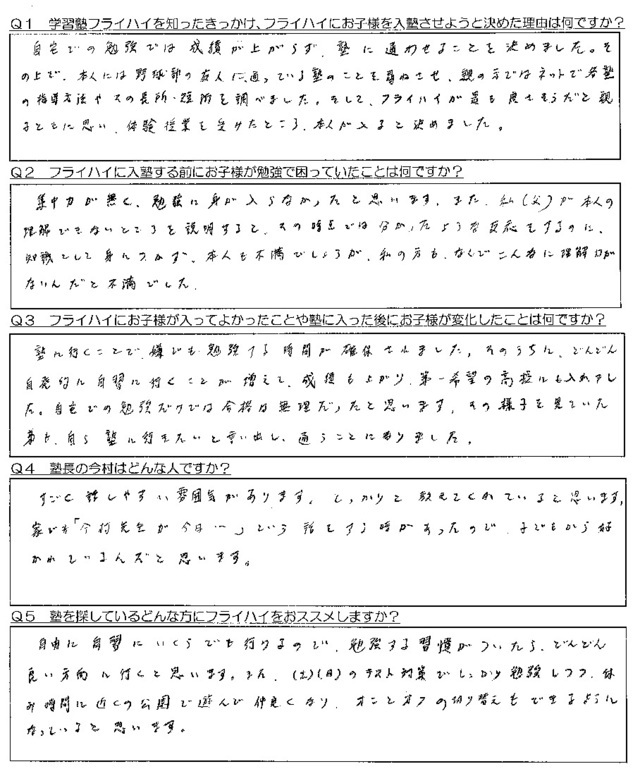 Q1 学習塾フライハイを知ったきっかけ、フライハイにお子様を入塾させようと決めた理由は何ですか?
自宅での勉強では成績が上がらず、塾に通わせることを決めました。そ
の上で、本人には野球部の友人に通っている塾のことを尋ねさせ、親の方ではネットで各塾
の指導方法やその長所・短所を調べました。そして、フライハイが最も良さそうだと親
子ともに思い、体験授業を受けたところ、本人が入ると決めました。
Q2 フライハイに入塾する前にお子様が勉強で困っていたことは何ですか?
集中力が無く、勉強に身が入らなかったと思います。また、私(父)が本人の
理解できないところを説明すると、その時点では分かったような反応をするのに、
知識として身につかず、本人も不満でしょうが、私の方も、なんでこんなに理解力が
ないんだと不満でした。
Q3 フライハイにお子様が入ってよかったことや塾に入った後にお子様が変化したことは何ですか?
塾に行くことで、嫌でも勉強する時間が確保されました。そのうちに、どんどん
自発的に自習に行くことが増えて、成績も上がり、第一希望の高校にも入れまし
た。自宅での勉強だけでは合格は無理だったと思います。その様子を見ていた
弟も、自ら塾に行きたいと言い出し、通うことになりました。
Q4 塾長の今村はどんな人ですか?
すごく話しやすい雰囲気があります。しっかりと教えてくれていると思います。
家でも「今村先生が今日…」という話をする時があったので、子どもから好
かれているんだと思います。
Q5 塾を探しているどんな方にフライハイをおススメしますか?
自由に自習にいくらでも行けるので、勉強する習慣がついたら、どんどん
良い方向に行くと思います。また、(土)(日)のテスト対策でしっかり勉強しつつ、休
み時間に近くの公園で遊んで仲良くなり、オンとオフの切り替えもできるように
なっていると思います。